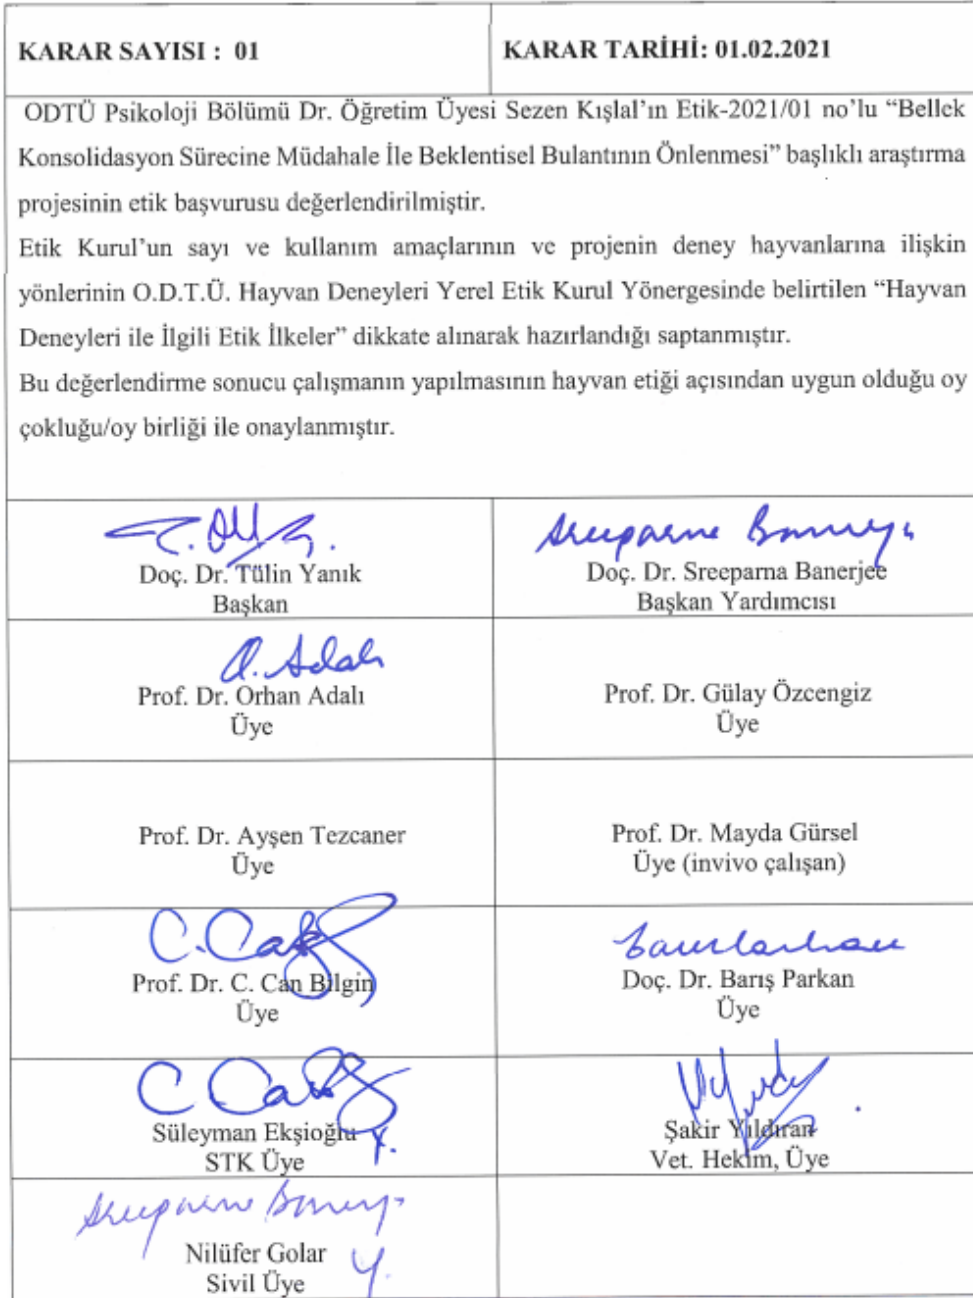 KARAR SAYISI : 01
KARAR TARİHİ: 01.02.2021
ODTÜ Psikoloji Bölümü Dr. Öğretim Üyesi Sezen Kışlal’ın Etik-2021/01 no’lu “Bellek
Konsolidasyon Sürecine Müdahale İle Beklentisel Bulantının Önlenmesi” başlıklı araştırma
projesinin etik başvurusu değerlendirilmiştir.
Etik Kurul’un sayı ve kullanım amaçlarının ve projenin deney hayvanlarına ilişkin
yönlerinin O.D.T.Ü. Hayvan Deneyleri Yerel Etik Kurul Yönergesinde belirtilen “Hayvan
Deneyleri ile İlgili Etik İlkeler” dikkate alınarak hazırlandığı saptanmıştır.
Bu değerlendirme sonucu çalışmanın yapılmasının hayvan etiği açısından uygun olduğu oy
çokluğu/oy birliği ile onaylanmıştır.
Doç. Dr. Tülin Yanık
Başkan
Sreeparna Banerjee
Doç. Dr. Sreeparna Banerjee
Başkan Yardımcısı
O. Adalı
Prof. Dr. Orhan Adalı
Üye
Prof. Dr. Gülay Özcengiz
Üye
Prof. Dr. Ayşen Tezcaner
Üye
Prof. Dr. Mayda Gürsel
Üye (invivo çalışan)
Prof. Dr. C. Can Bilgin
Üye
Doç. Dr. Barış Parkan
Üye
Süleyman Ekşioğlu
Y.
STK Üye
Şakir Yıldıran
Vet. Hekim, Üye
Sreeparna Banerjee
Nilüfer Golar
Y.
Sivil Üye